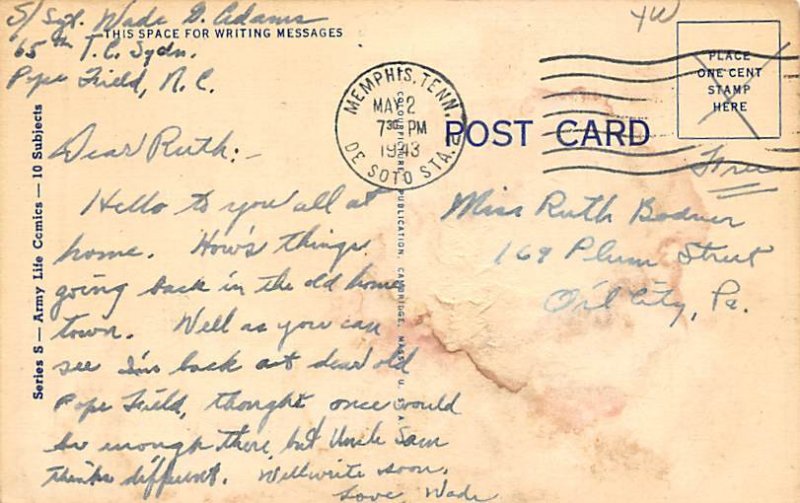 S/Sgt. Wade G. Adams
THIS SPACE FOR WRITING MESSAGES
65th T.C. Sqdn.
Pope Field, N.C.
Series S — Army Life Comics — 10 Subjects
Dear Ruth:-
Hello to you all at
home. How's things
going back in the old home
town. Well as you can
see I'm back at dear old
Pope Field, thought once would
be enough there, but Uncle Sam
thinks different. Will write soon.
Love, Wade
MEMPHIS, TENN.
MAY 2
7 30 PM
1943
DE SOTO STA.
PUBLICATION, CAMBRIDGE, MASS., U.S.A.
POST CARD
PLACE
ONE CENT
STAMP
HERE
Free
Miss Ruth Bodner
169 Plum Street
Oil City, Pa.